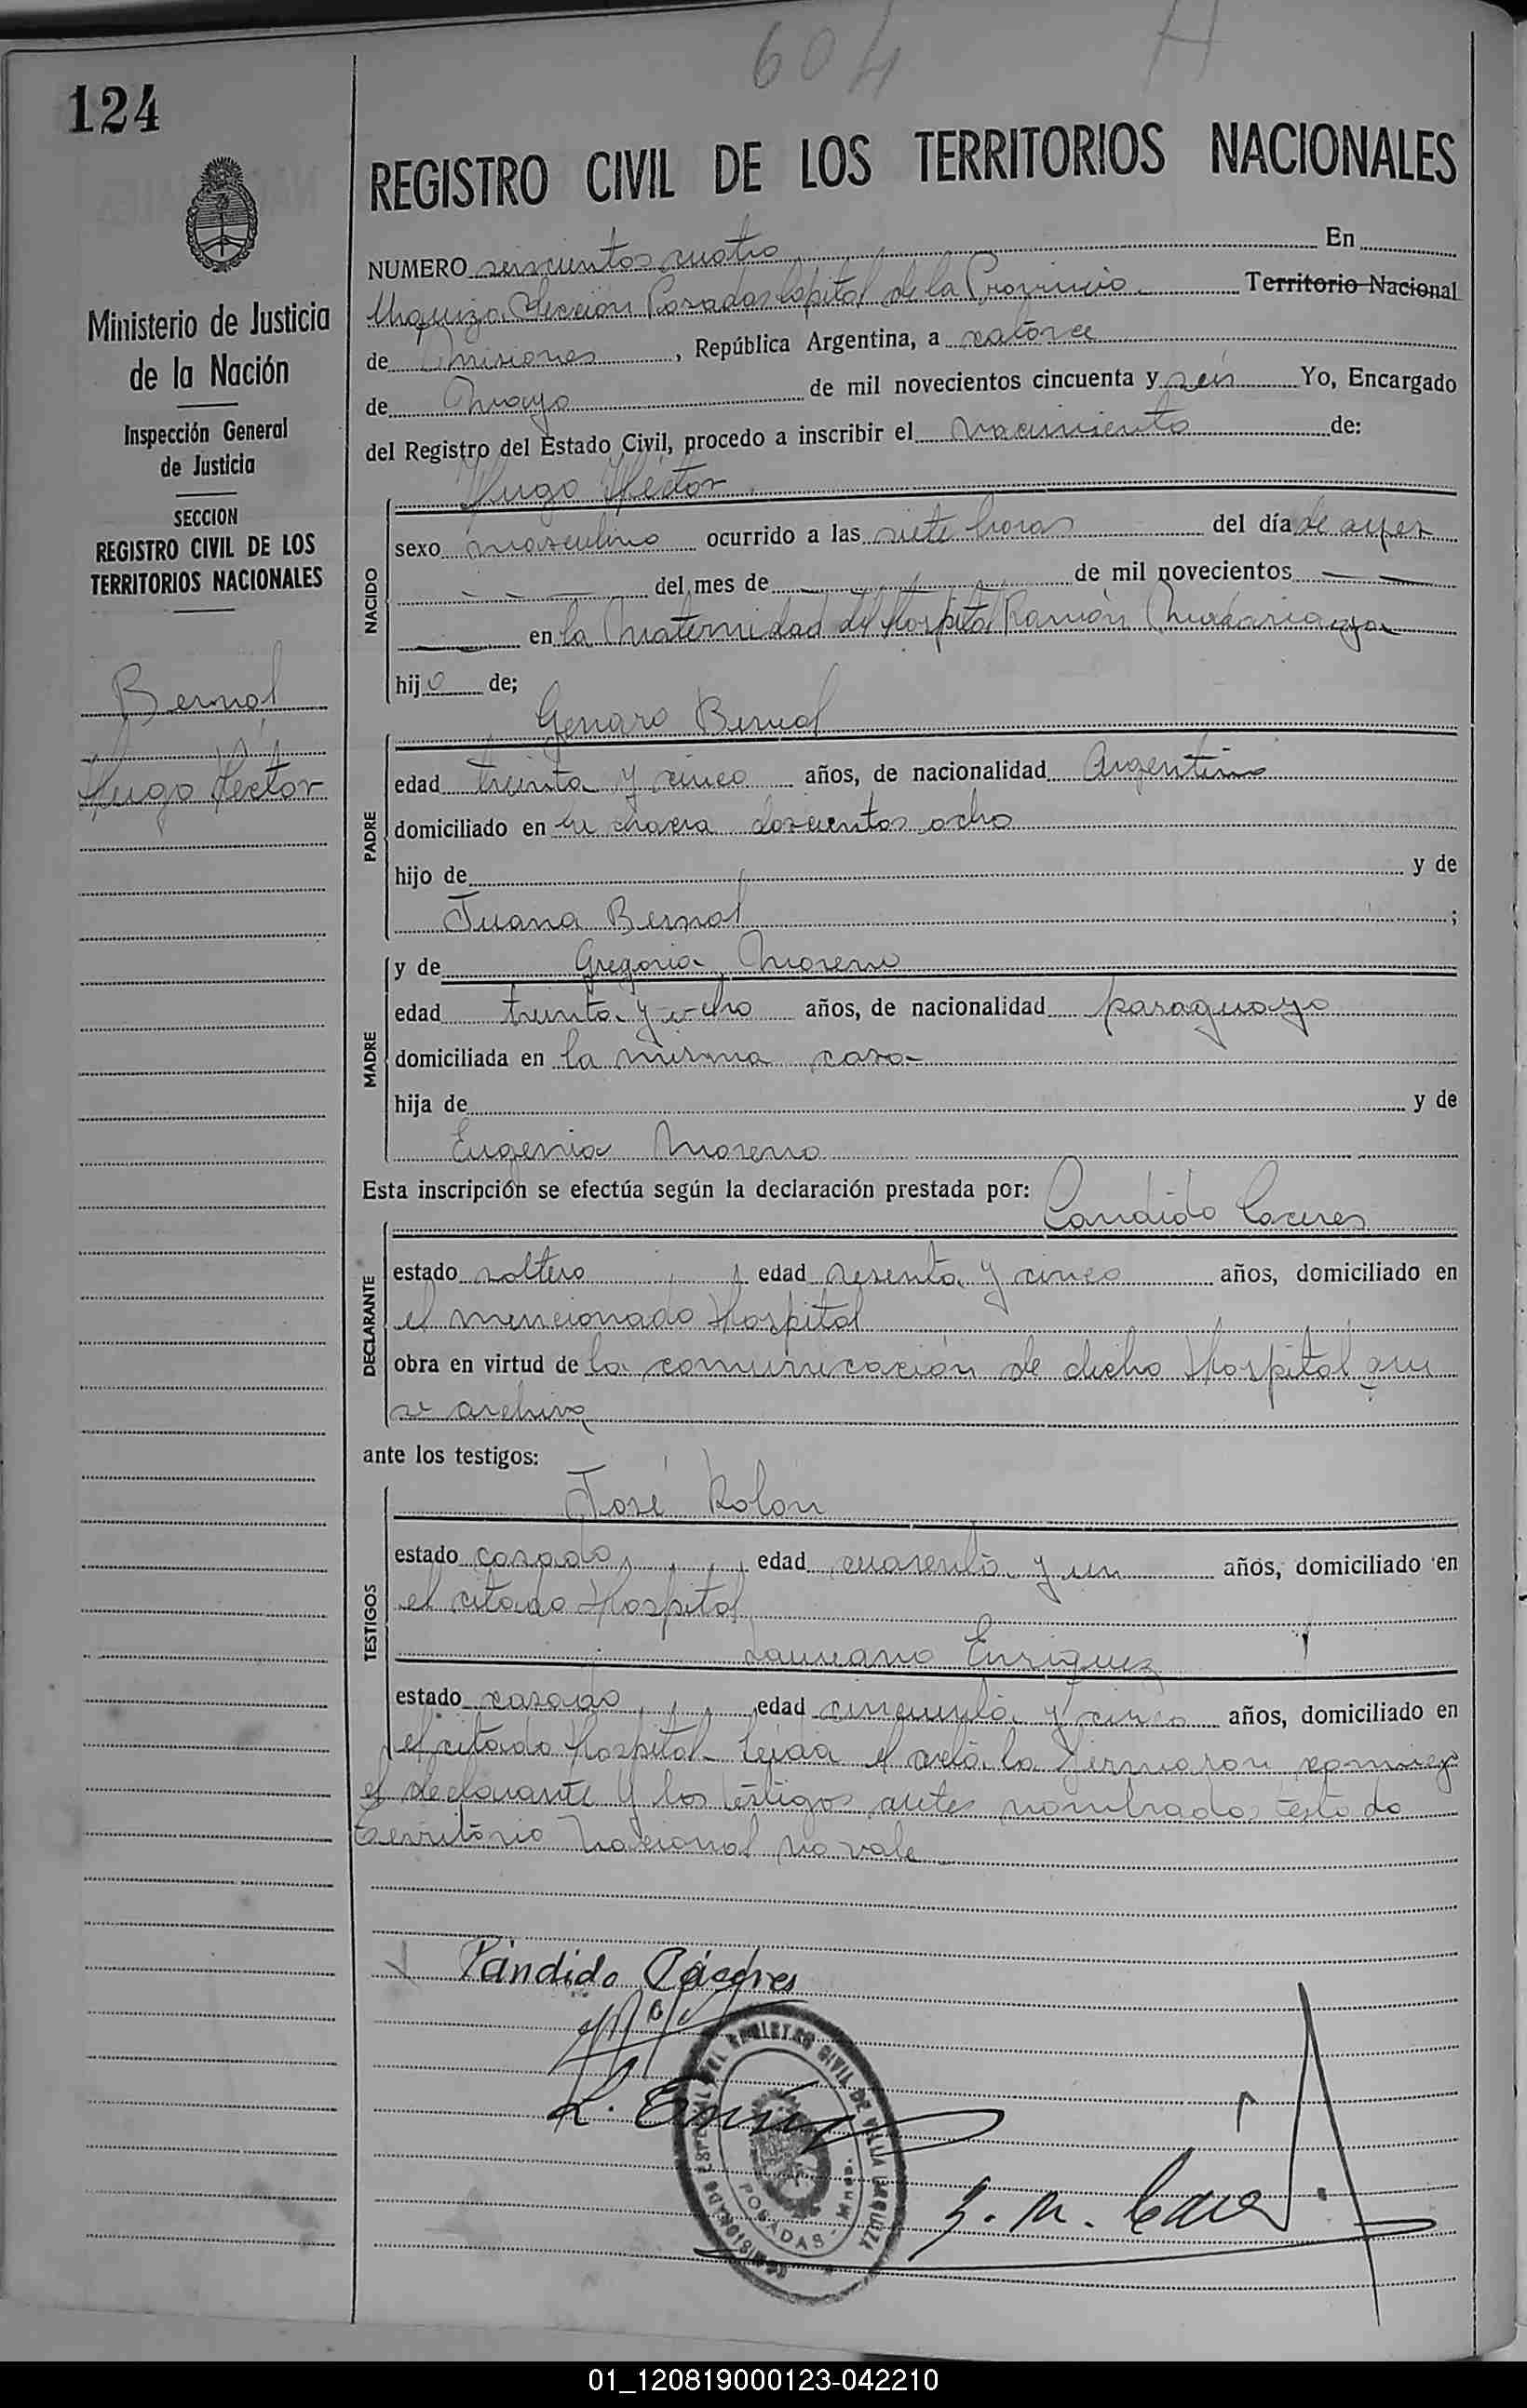 604 H
124
REGISTRO CIVIL DE LOS TERRITORIOS NACIONALES
Ministerio de Justicia
de la Nación
Inspección General
de Justicia
SECCION
REGISTRO CIVIL DE LOS
TERRITORIOS NACIONALES
Bernal
Hugo Héctor
NUMERO seiscientos cuatro En
Urquiza Sección Posadas Capital de la Provincia Territorio Nacional
de Misiones, República Argentina, a catorce
de Mayo de mil novecientos cincuenta y seis Yo, Encargado
del Registro del Estado Civil, procedo a inscribir el Nacimiento de:
Hugo Héctor
NACIDO
sexo masculino ocurrido a las siete horas del día de ayer
del mes de de mil novecientos
en la Maternidad del Hospital Ramón Madariaga
hijo de;
Genaro Bernal
PADRE
edad treinta y cinco años, de nacionalidad Argentino
domiciliado en la chacra doscientos ocho
hijo de y de
Juana Bernal ;
MADRE
y de Gregoria Moreno
edad treinta y ocho años, de nacionalidad paraguaya
domiciliada en la misma casa
hija de y de
Eugenia Moreno
Esta inscripción se efectúa según la declaración prestada por:
Candido Caceres
DECLARANTE
estado soltero edad sesenta y cinco años, domiciliado en
el mencionado Hospital
obra en virtud de la comunicación de dicho Hospital que
se archiva
ante los testigos:
José Rolon
TESTIGOS
estado casado edad cuarenta y un años, domiciliado en
el citado Hospital
Laureano Enriquez
estado casado edad cincuenta y cinco años, domiciliado en
el citado Hospital Leida el acta la firmaron conmigo
el declarante y los testigos antes nombrados testado
territorio Nacional no vale
Cándido Cáceres
L. Enriquez
REGISTRO CIVIL DE VILLA URQUIZA
POSADAS - Mnes.
01_120819000123-042210